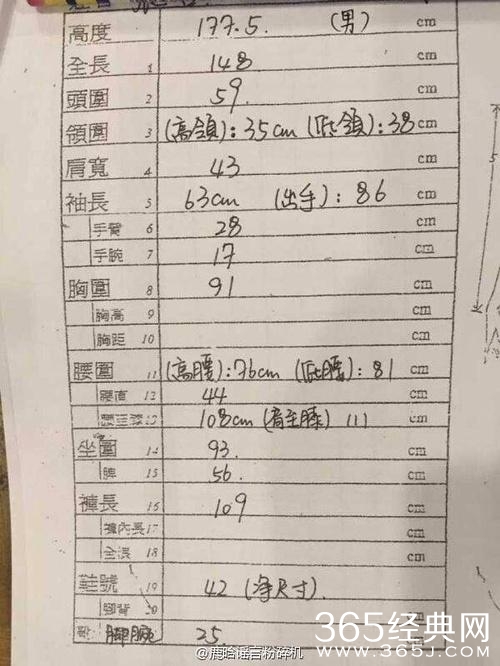 高度 177.5. (男) cm
全長 1 148 cm
頭圍 2 59. cm
領圍 3 (高領):35cm (低領):38 cm
肩寬 4 43 cm
袖長 5 63cm (出手):86 cm
手臂 6 28 cm
手腕 7 17 cm
胸圍 8 91 cm
胸高 9 cm
胸距 10 cm
腰圍 11 (高腰):76cm (低腰):81 cm
腰直 12 44 cm
108cm (肩至膝) 111 cm
坐圍 14 93. cm
脾 15 56. cm
褲長 16 109 cm
褲內長 17 cm
全浪 18 cm
鞋號 19 42 (淨尺寸). cm
腳背 20 cm
腳腕 25. cm
5
@鹿晗谣言粉碎机
365经典网
www.365j.com